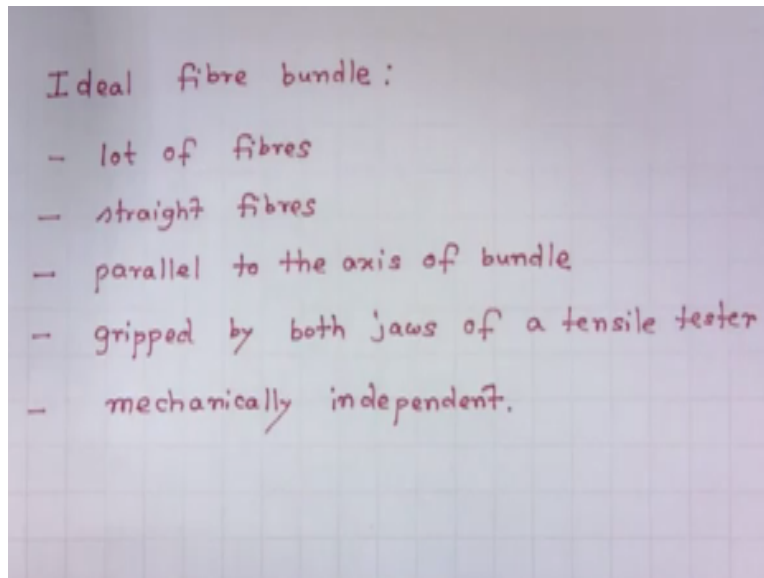 Ideal fibre bundle:
- lot of fibres
- straight fibres
- parallel to the axis of bundle
- gripped by both jaws of a tensile tester
- mechanically independent.